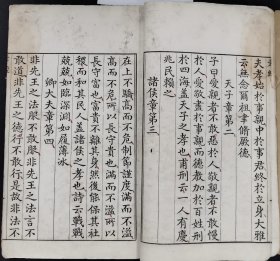 夫孝始於事親中於事君終於立身大雅
云無念爾祖聿脩厥德
天子章第二
子曰愛親者不敢惡於人敬親者不敢慢
於人愛敬盡於事親而德教加於百姓刑
於四海蓋天子之孝也甫刑云一人有慶
兆民賴之
諸侯章第三
在上不驕高而不危制節謹度滿而不溢
高而不危所以長守貴也滿而不溢所以
長守富也富貴不離其身然後能保其社
稷而和其民人蓋諸侯之孝也詩云戰戰
兢兢如臨深淵如履薄冰
卿大夫章第四
非先王之法服不敢服非先王之法言不
敢道非先王之德行不敢行是故非法不